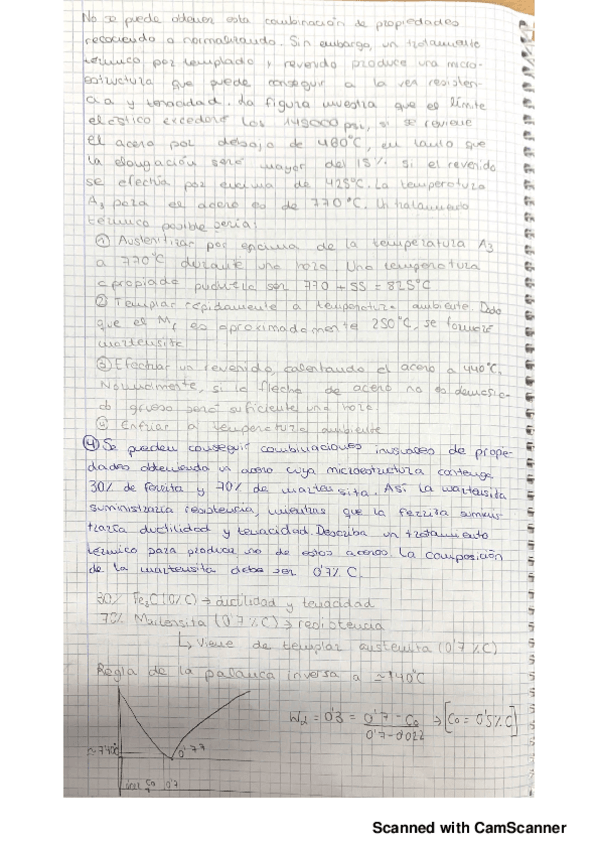 No se puede obtener esta combinación de propiedades
recociendo o normalizando. Sin embargo, un tratamiento
térmico por templado y revenido produce una micro-
estructura que puede conseguir a la vez resisten-
cia y tenacidad. La figura muestra que el límite
elástico excederá los 145000 psi, si se reviene
el acero por debajo de 480°C, en tanto que
la elongación será mayor del 15% si el revenido
se efectúa por encima de 425°C. La temperatura
A3 para el acero es de 770°C. Un tratamiento
térmico posible sería:
① Austenitizar por encima de la temperatura A3
a 770°C durante una hora. Una temperatura
apropiada pudiera ser 770 + 55 = 825°C
② Templar rápidamente a temperatura ambiente. Dado
que el Mf es aproximadamente 250°C, se formará
martensita
③ Efectuar un revenido, calentando el acero a 440°C.
Normalmente, si la flecha de acero no es demasia-
do gruesa será suficiente una hora.
④ Enfriar a temperatura ambiente
④ Se pueden conseguir combinaciones inusuales de propie-
dades obteniendo un acero cuya microestructura contenga
30% de ferrita y 70% de martensita. Así la martensita
suministraría resistencia, mientras que la ferrita suminis-
traría ductilidad y tenacidad. Describa un tratamiento
térmico para producir uno de estos aceros. La composición
de la martensita debe ser 0'7% C.
30% Fe3C (0%C) → ductilidad y tenacidad
70% Martensita (0'7%C) → resistencia
↳ Viene de templar austenita (0'7%C)
Regla de la palanca inversa a ≈740°C
Wα = 0'3 = 0'7 - C0 / 0'7-0'022 → [C0 = 0'5%C]
≈740°C
0'77
C0 0'7
Scanned with CamScanner